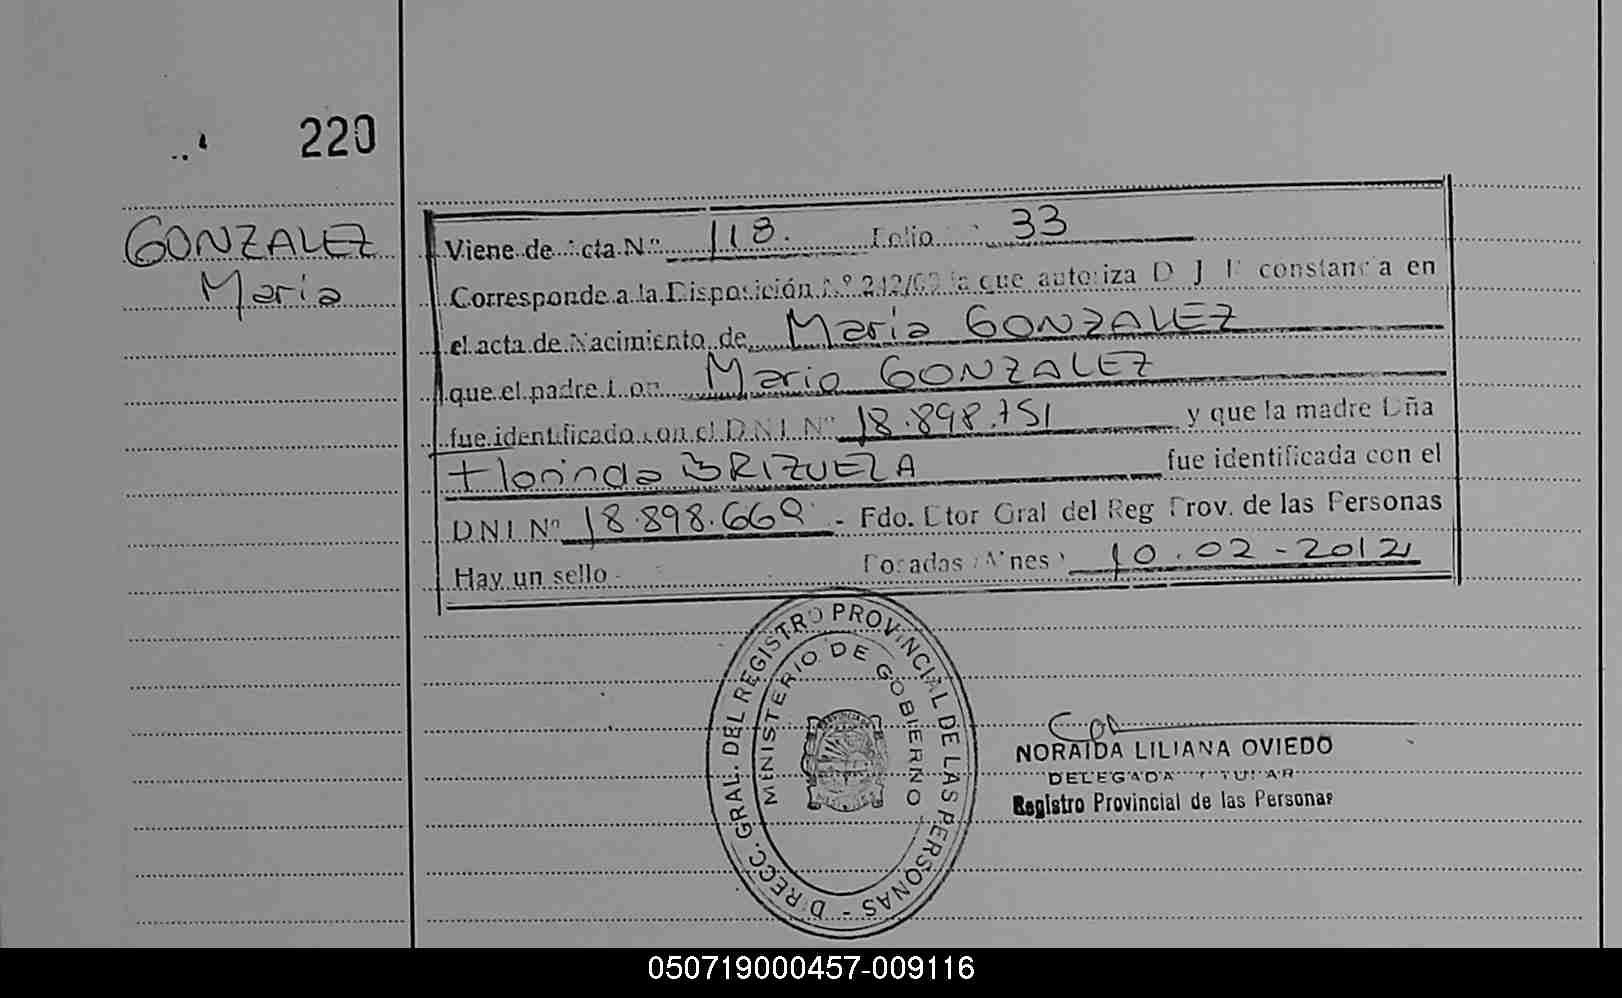 220
GONZALEZ
Maria
Viene de Acta Nº 118. Folio 33
Corresponde a la Disposición Nº 212/02 la que autoriza D J P constancia en
el acta de Nacimiento de Maria GONZALEZ
que el padre Don Mario GONZALEZ
fue identificado con el DNI Nº 18.898.751 y que la madre Dña
Florinda BRIZUELA fue identificada con el
DNI Nº 18.898.668 - Fdo. Dtor Gral del Reg Prov. de las Personas
Hay un sello - Posadas (Mnes) 10.02-2012
DIRECC. GRAL. DEL REGISTRO PROVINCIAL DE LAS PERSONAS -
MINISTERIO DE GOBIERNO
NORAIDA LILIANA OVIEDO
DELEGADA TITULAR
Registro Provincial de las Personas
050719000457-009116